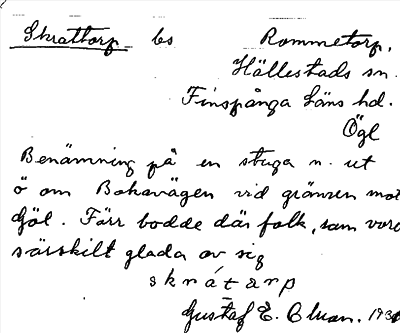 Skrattorp bs Rommetorp,
Hällestads sn.
Finspånga läns hd.
Ögl
Benämning på en stuga n. ut
ö om Bokavägen vid gränsen mot
Göl. Förr bodde där folk, som voro
särskilt glada av sig
skrátarp
Gustaf E. 193